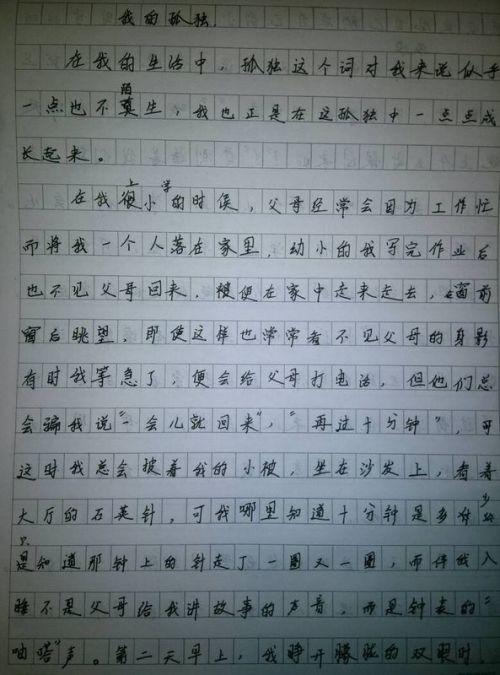 我的孤独
在我的生活中，孤独这个词对我来说似乎
一点也不陌生，我也正是在这孤独中一点点成
长起来。
在我上小学的时侯，父母经常会因为工作忙
而将我一个人落在家里，幼小的我写完作业后
也不见父母回来，便在家中走来走去，窗前
窗后眺望，即使这样也常常看不见父母的身影
有时我等急了，便会给父母打电话，但他们总
会骗我说"一会儿就回来"，"再过十分钟"，可
这时我总会披着我的小被，坐在沙发上，看着
大厅的石英针，可我哪里知道十分钟是多少
只是知道那钟上的针走了一圈又一圈，而伴我入
睡不是父母给我讲故事的声音，而是钟表的"
嗒"声。第二天早上，我睁开朦胧的双眼时，